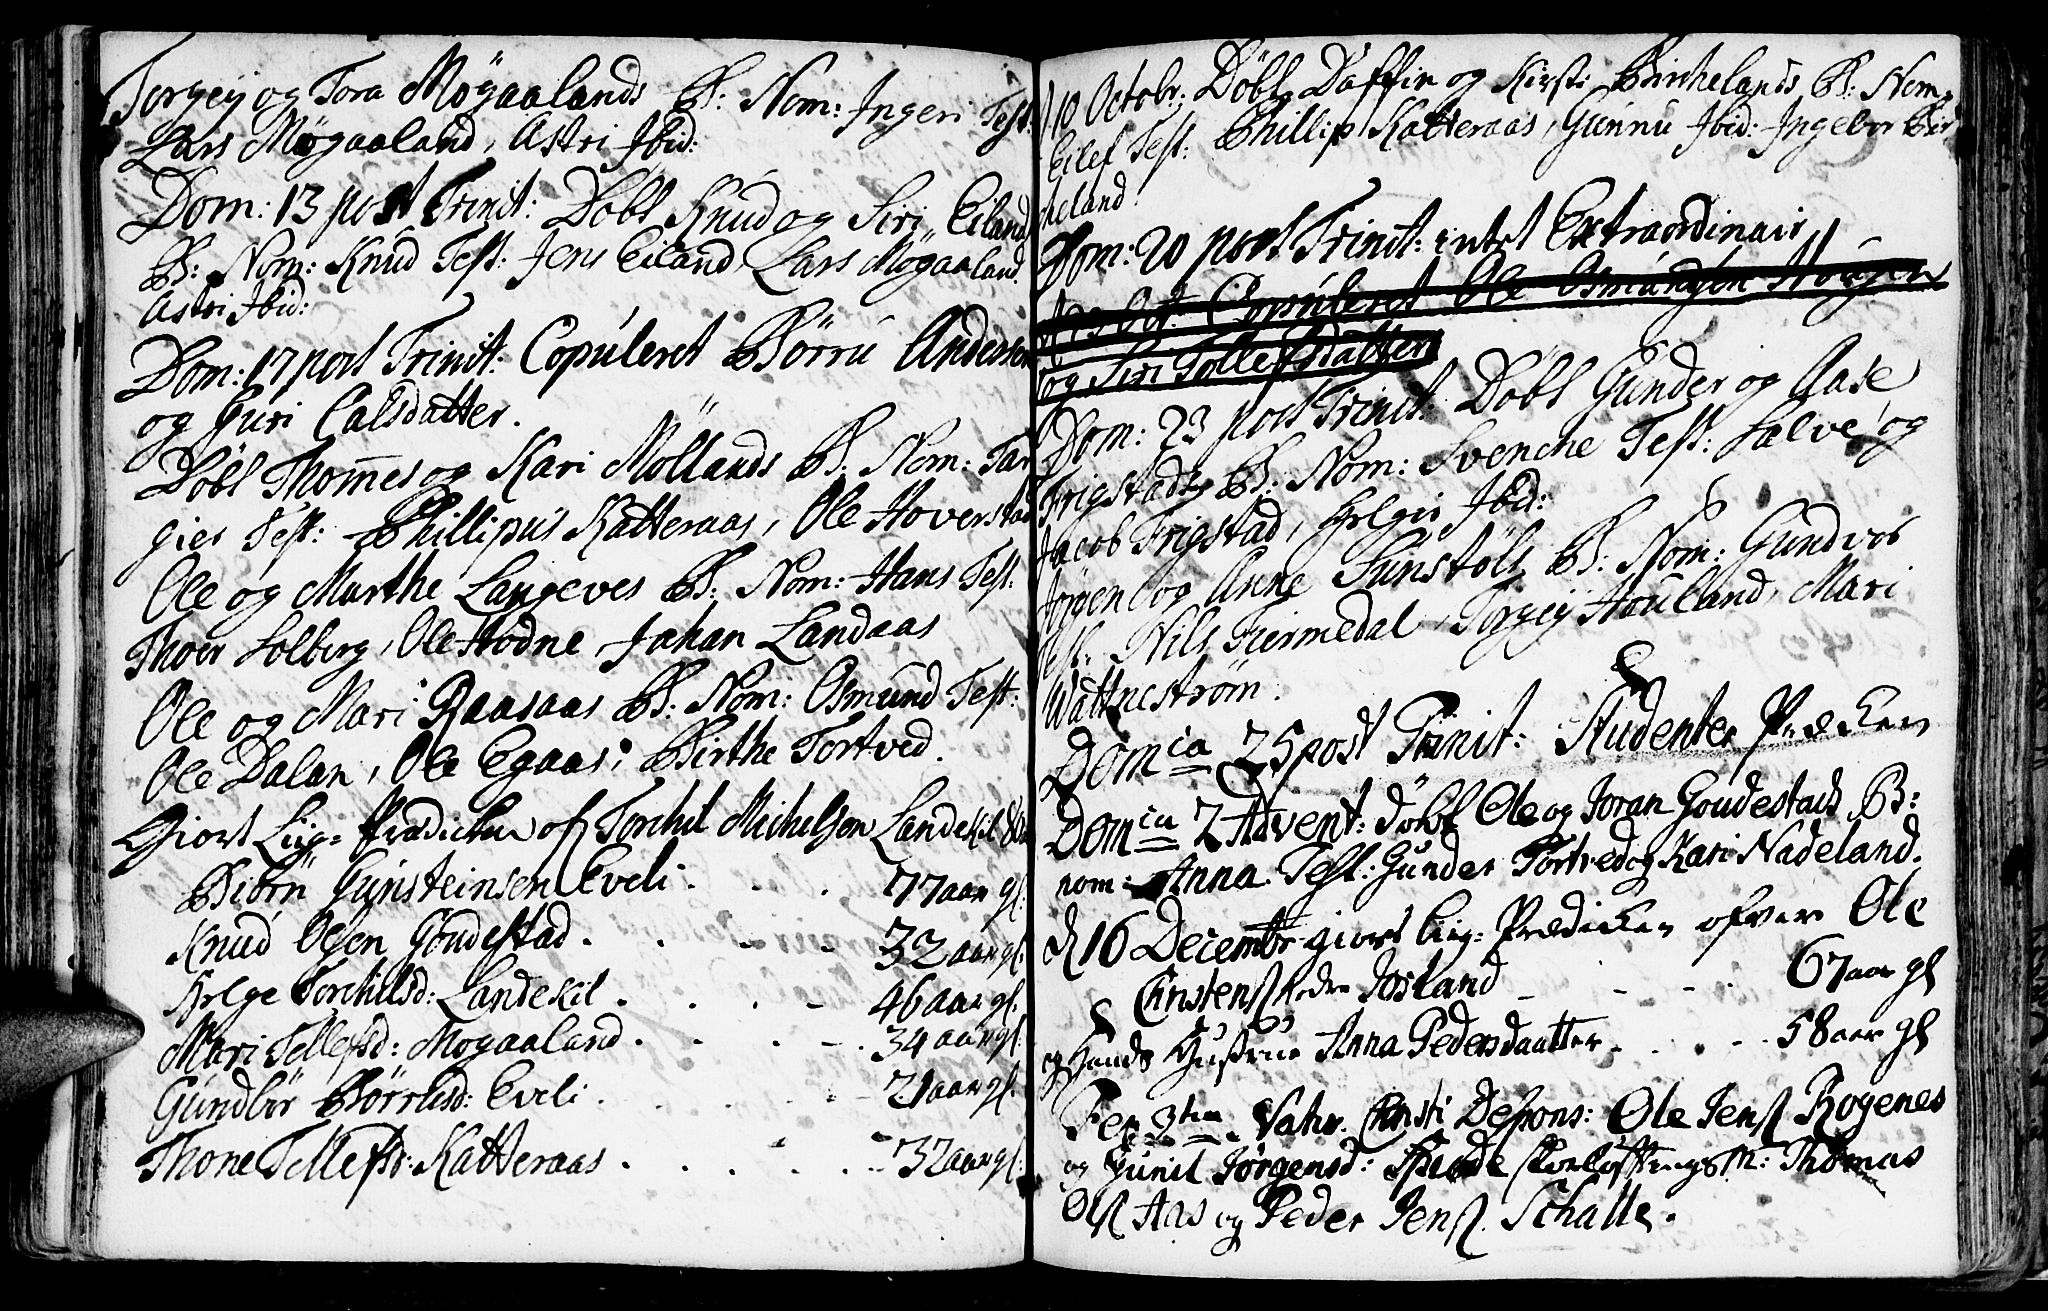 Torgey og Tora Møgaalands B: Nom: Ingeri Test:
Lars Møgaaland, Astri Ibid:
Dom: 13 post Trinit: Döbt Knud og Siri Eiland
B: Nom: Knud Test: Jens Eiland, Lars Møgaaland
Astri Ibid:
Dom: 17 post Trinit: Copuleret Børru Anderssen
og Guri Calsdatter.
Döbt Thomes og Kari Möllands B: Nom: Tar
gier Test: Phillipus Katteraas, Ole Hoverstad
Ole og Marthe Langeves B: Nom: Hans Test:
Thoer Solberg, Ole Hodne Johan Landaas
Ole og Mari Raasaas B: Nom: Osmund Test:
Ole Dalan, Ole Egaas, Birthe Tortved.
Giort Liig-Prædicken of Torchil Michelsen Landekil
Biørn Gunsteinsen Eveli. . . 77 aar gl:
Knud Olsen Goudestad. . . 32 aar gl:
Helge Torchilsd: Landekil. . . 46 aar gl.
Mari Tellefsd: Mogaaland. . . 34 aar gl.
Gundbor Børrusd: Eveli. . . 21 aar gl.
Thone Tellefsd: Katteraas. . . 32 aar gl:
10 Octobr: Döbt Daffin og Kirst: Birchelands B: Nom:
Eilef Test: Phillip Katteraas, Gunnu Ibid: Ingebor Bir
cheland
Dom: 20 post Trinit: intet Extraordinair
Oct: Copuleret Ole Osmundsen Hougen
og Siri Tollefsdatter
Dom: 23 post Trinit: Döbt Gunder og Aase
Frigstads B: Nom: Svenche Test: Salve og
Jacob Frigstad, Helgin Ibid:
Jørgen og Anne Sunstöls B: Nom: Gundvor
Test. Nils Fiermedal, Torgey Houland, Mari
Wattnestrøm.
Domca 25 post Trinit: Studenter Prædicken
Domca 2 Advent: döbt Ole og Joran Goudestads B:
nom: Anna. Test: Gunder Tortved og Kari Nadeland.
d 16 Decembr giort liig-Prædicken ofver Ole
Christens Iosland - - - 67 aar gl
og Hands Hustrue Anna Pedersdaatter. . . 58 aar gl
Fer 3tia Nativ. Christi Despons: Ole Jens Rogenes
og Gunil Jørgensd: M: Thomas
Ols Aas og Peder Jens. Schalle.